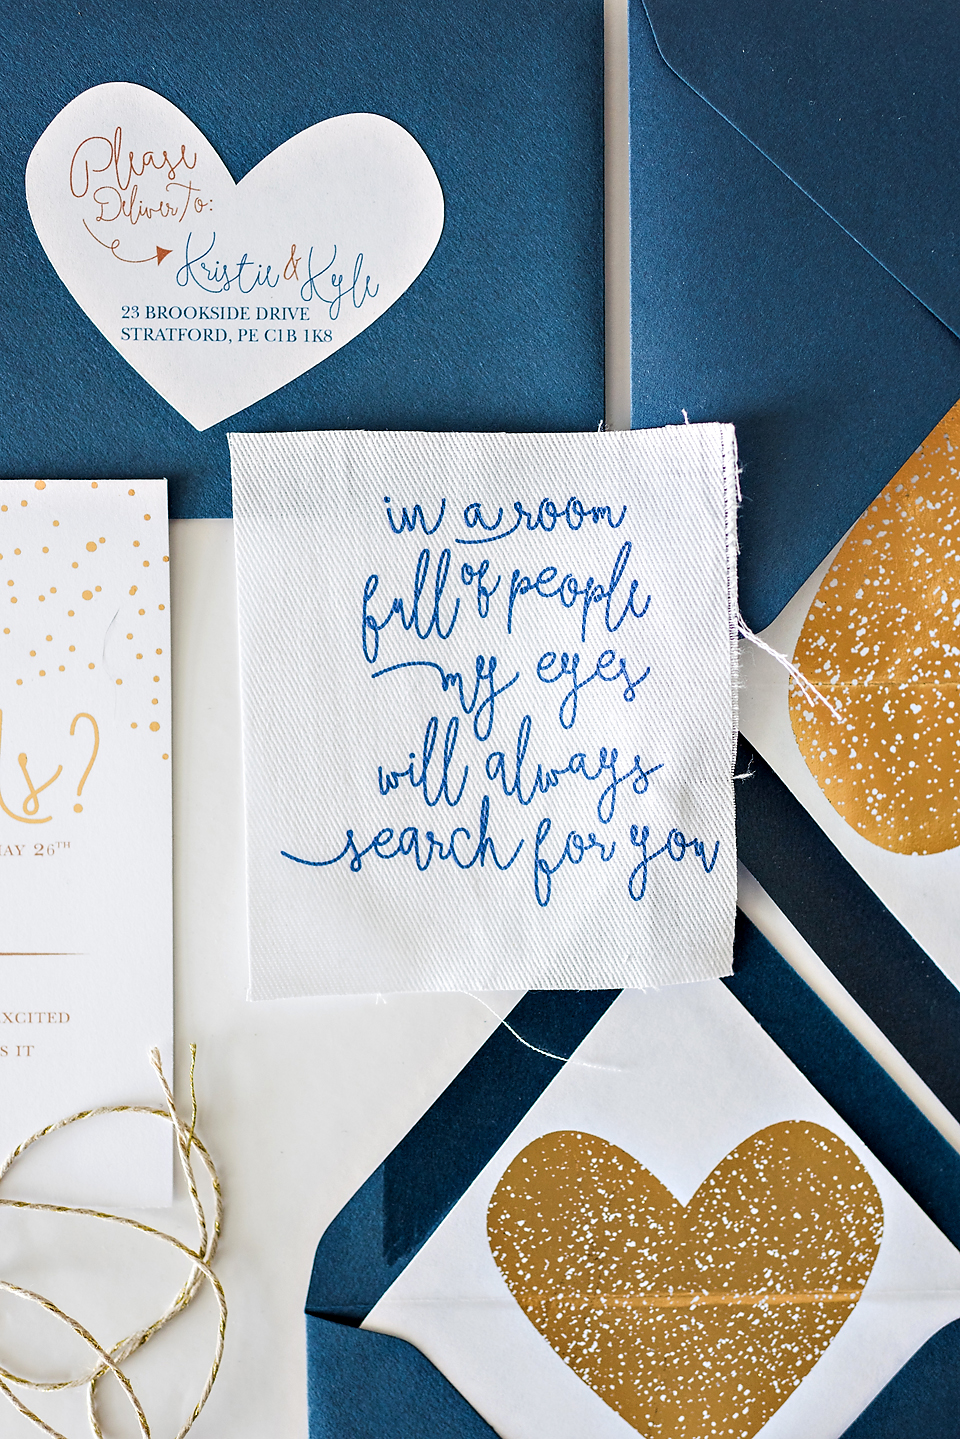 Please
Deliver To:
Kristie & Kyle
23 BROOKSIDE DRIVE
STRATFORD, PE C1B 1K8
in a room
full of people
my eyes
will always
search for you
?
MAY 26TH
EXCITED
S IT